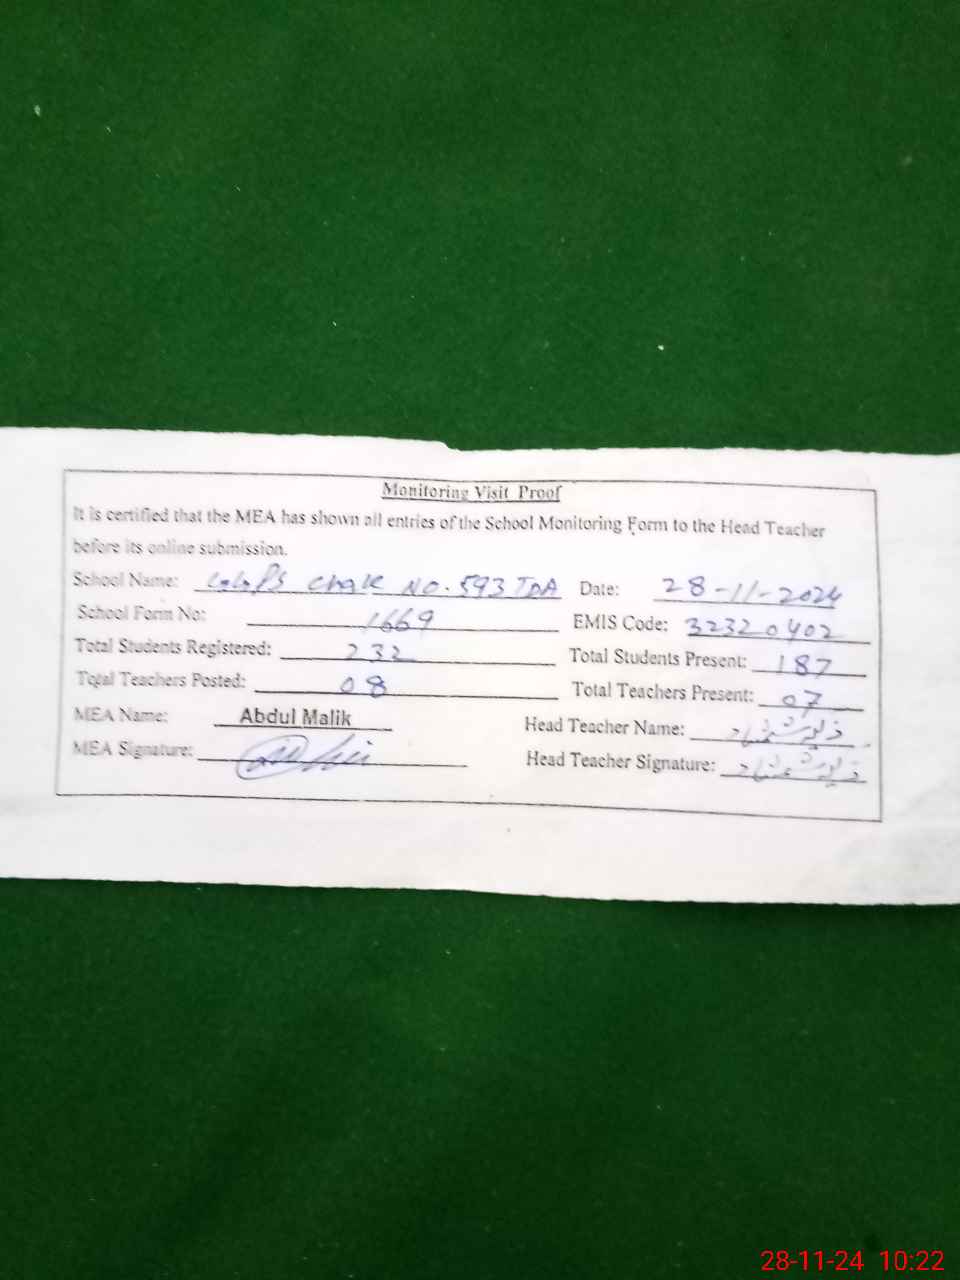 Monitoring Visit Proof
It is certified that the MEA has shown all entries of the School Monitoring Form to the Head Teacher
before its online submission.
School Name: G.G.PS Chak NO. 593 TDA Date: 28-11-2024
School Form No: 1669 EMIS Code: 32320402
Total Students Registered: 232 Total Students Present: 187
Total Teachers Posted: 08 Total Teachers Present: 07
MEA Name: Abdul Malik Head Teacher Name:
MEA Signature: Head Teacher Signature:
28-11-24 10:22